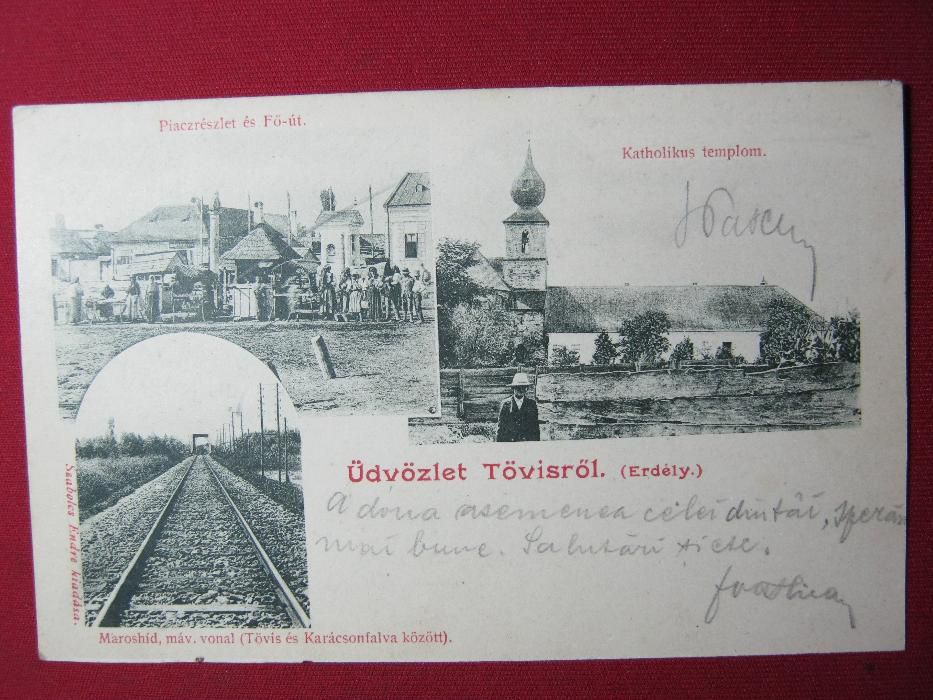 Piaczrészlet és Fő-út.
Katholikus templom.
Üdvözlet Tövisről. (Erdély.)
A doua asemenea celei dintăi, sperăm
mai bune. Salutări
Szabolcs Endre kiadása.
Maroshíd, máv. vonal (Tövis és Karácsonfalva között).